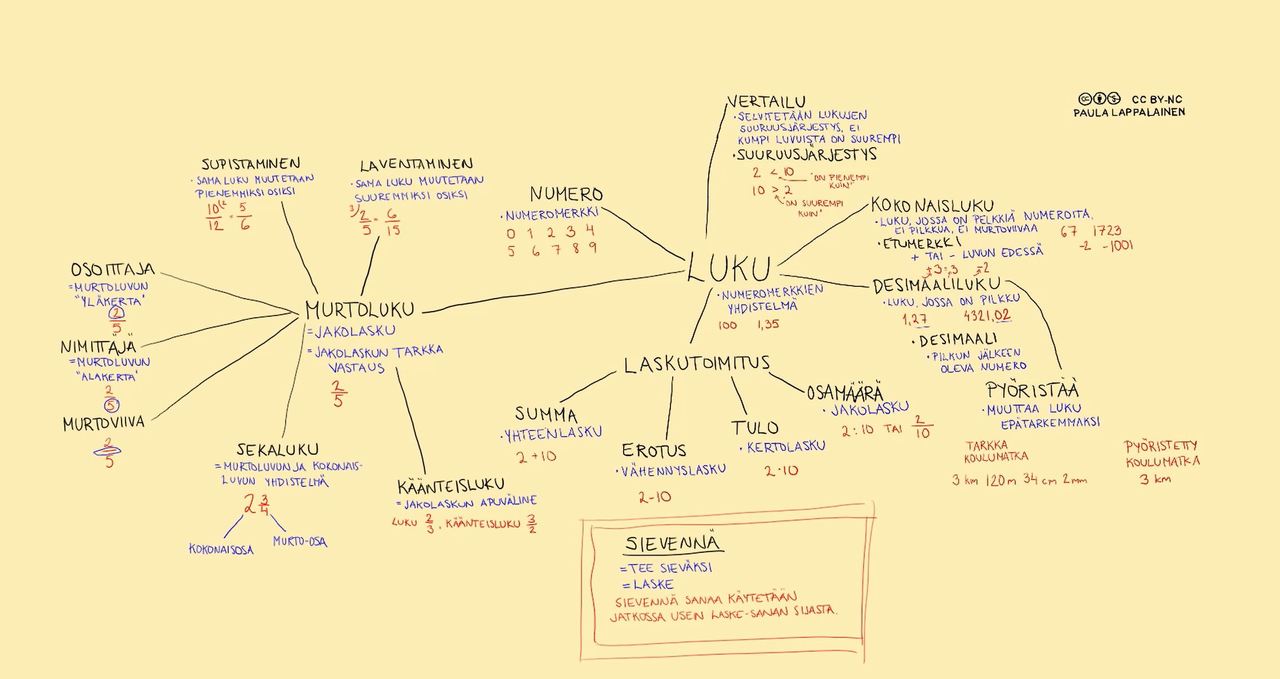 CC BY-NC
PAULA LAPPALAINEN
LUKU
·NUMEROMERKKIEN
YHDISTELMÄ
100 1,35
VERTAILU
·SELVITETÄÄN LUKUJEN
SUURUUSJÄRJESTYS, ELI
KUMPI LUVUISTA ON SUUREMPI
·SUURUUSJÄRJESTYS
2 < 10
"ON PIENEMPI
KUIN"
10 > 2
"ON SUUREMPI
KUIN"
KOKONAISLUKU
·LUKU, JOSSA ON PELKKIÄ NUMEROITA,
EI PILKKUA, EI MURTOVIIVAA
67 1723
-2 -1001
·ETUMERKKI
+ TAI - LUVUN EDESSÄ
±3=3 -2
DESIMAALILUKU
·LUKU, JOSSA ON PILKKU
1,27 4321,02
·DESIMAALI
·PILKUN JÄLKEEN
OLEVA NUMERO
PYÖRISTÄÄ
·MUUTTAA LUKU
EPÄTARKEMMAKSI
TARKKA
KOULUMATKA
3 km 120m 34 cm 2mm
PYÖRISTETTY
KOULUMATKA
3 km
NUMERO
·NUMEROMERKKI
0 1 2 3 4
5 6 7 8 9
LASKUTOIMITUS
SUMMA
·YHTEENLASKU
2+10
EROTUS
·VÄHENNYSLASKU
2-10
TULO
·KERTOLASKU
2·10
OSAMÄÄRÄ
·JAKOLASKU
2:10 TAI 2/10
MURTOLUKU
=JAKOLASKU
=JAKOLASKUN TARKKA
VASTAUS
2/5
SUPISTAMINEN
·SAMA LUKU MUUTETAAN
PIENEMMIKSI OSIKSI
10/12 (2 = 5/6
LAVENTAMINEN
·SAMA LUKU MUUTETAAN
SUUREMMIKSI OSIKSI
3) 2/5 = 6/15
OSOITTAJA
=MURTOLUVUN
"YLÄKERTA"
2/5
NIMITTÄJÄ
=MURTOLUVUN
"ALAKERTA"
2/5
MURTOVIIVA
2/5
SEKALUKU
=MURTOLUVUN JA KOKONAIS-
LUVUN YHDISTELMÄ
2 3/4
KOKONAISOSA
MURTO-OSA
KÄÄNTEISLUKU
=JAKOLASKUN APUVÄLINE
LUKU 2/3, KÄÄNTEISLUKU 3/2
SIEVENNÄ
=TEE SIEVÄKSI
=LASKE
SIEVENNÄ SANAA KÄYTETÄÄN
JATKOSSA USEIN LASKE-SANAN SIJASTA.